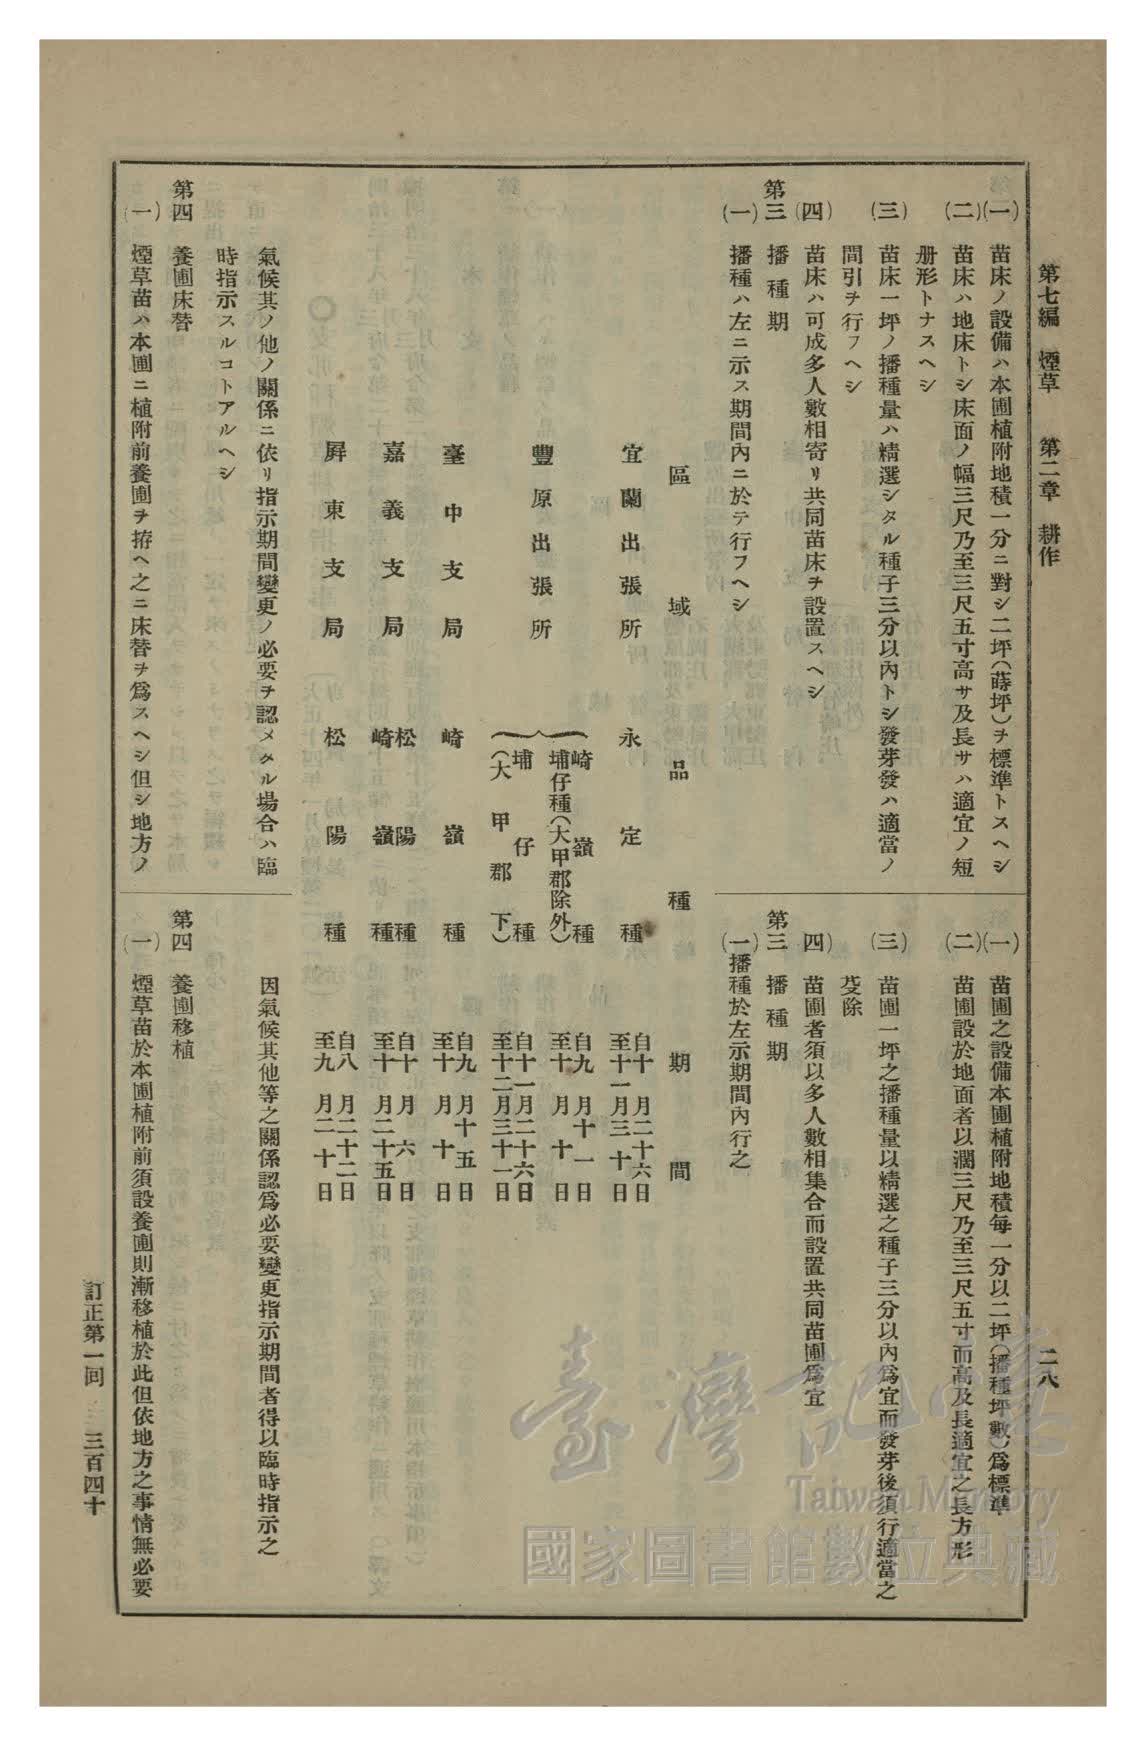 第七編　煙草　　第二章　耕作
二八
(一)　苗床ノ設備ハ本圃植附地積一分ニ對シ二坪(蒔坪)ヲ標準トスヘシ
(二)　苗床ハ地床トシ床面ノ幅三尺乃至三尺五寸高サ及長サハ適宜ノ短
册形トナスヘシ
(三)　苗床一坪ノ播種量ハ精選シタル種子三分以內トシ發芽發ハ適當ノ
間引ヲ行フヘシ
(四)　苗床ハ可成多人數相寄リ共同苗床ヲ設置スヘシ
第三　播種期
(一)　播種ハ左ニ示ス期間內ニ於テ行フヘシ
(一)　苗圃之設備本圃植附地積每一分以二坪(播種坪數)爲標準
(二)　苗圃設於地面者以濶三尺乃至三尺五寸而高及長適宜之長方形
(三)　苗圃一坪之播種量以精選之種子三分以內爲宜而發芽後須行適當之
芟除
(四)　苗圃者須以多人數相集合而設置共同苗圃爲宜
第三　播種期
(一)播種於左示期間內行之
區域　品種　期間
宜蘭出張所　永定種　自十月二十六日
至十一月三十日
豐原出張所　崎嶺種
埔仔種(大甲郡除外)　自九月十一日
至十月十日
埔仔種
(大甲郡下)　自十一月二十六日
至十二月三十一日
臺中支局　崎嶺種　自九月十五日
至十月十日
嘉義支局　松陽種
崎嶺種　自十月六日
至十月二十五日
屛東支局　松陽種　自八月二十二日
至九月二十日
氣候其ノ他ノ關係ニ依リ指示期間變更ノ必要ヲ認メタル場合ハ臨
時指示スルコトアルヘシ
第四　養圃床替
(一)　煙草苗ハ本圃ニ植附前養圃ヲ拵ヘ之ニ床替ヲ爲スヘシ但シ地方ノ
因氣候其他等之關係認爲必要變更指示期間者得以臨時指示之
第四　養圃移植
(一)　煙草苗於本圃植附前須設養圃則漸移植於此但依地方之事情無必要
訂正第一回　三百四十
臺灣記憶
Taiwan Memory
國家圖書館數位典藏